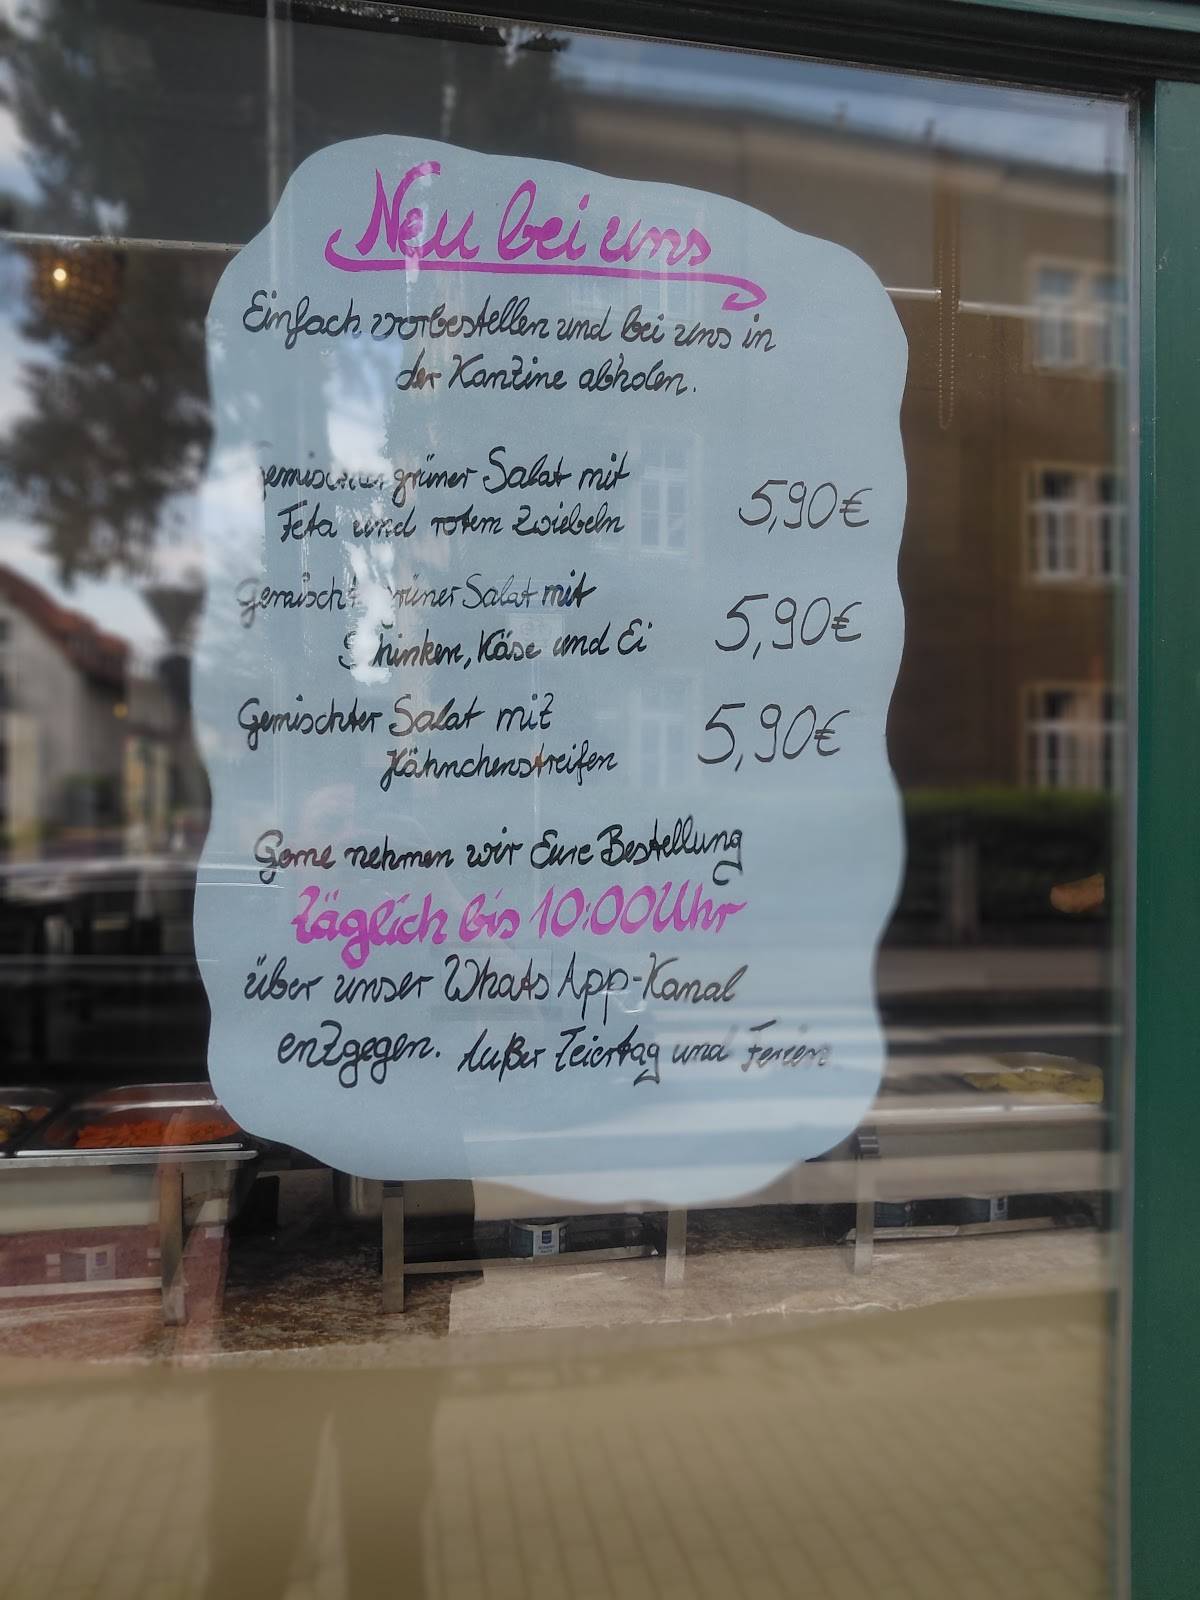 Neu bei uns
Einfach vorbestellen und bei uns in
der Kantine abholen.
Gemischter grüner Salat mit
Feta und rotem Zwiebeln
5,90€
Gemischter grüner Salat mit
Schinken, Käse und Ei
5,90€
Gemischter Salat mit
Hähnchenstreifen
5,90€
Gerne nehmen wir Eure Bestellung
täglich bis 10:00 Uhr
über unser WhatsApp-Kanal
entgegen. Außer Feiertag und Ferien.